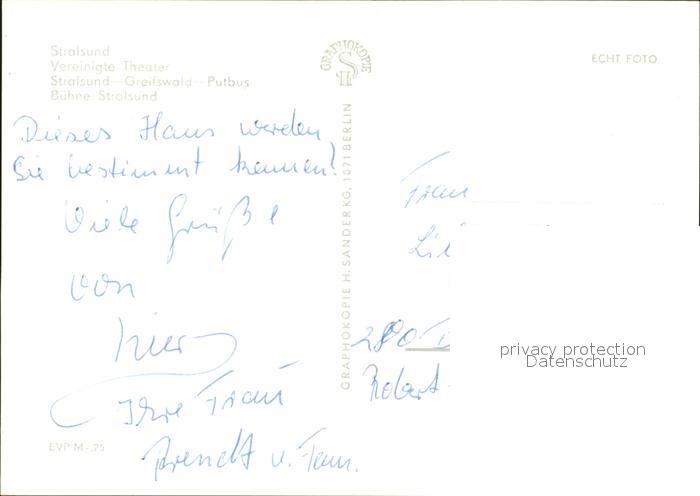 Stralsund
Vereinigte Theater
Stralsund—Greifswald—Putbus
Bühne Stralsund
GRAPHOKOPIE
H S
ECHT FOTO
Dieses Haus werden
Sie bestimmt kennen!
Viele Grüße
von
hier
Ihre Frau
Arendt u. Fam.
EVP M -,25
GRAPHOKOPIE H. SANDER KG, 1071 BERLIN
Frau
Robert
privacy protection
Datenschutz